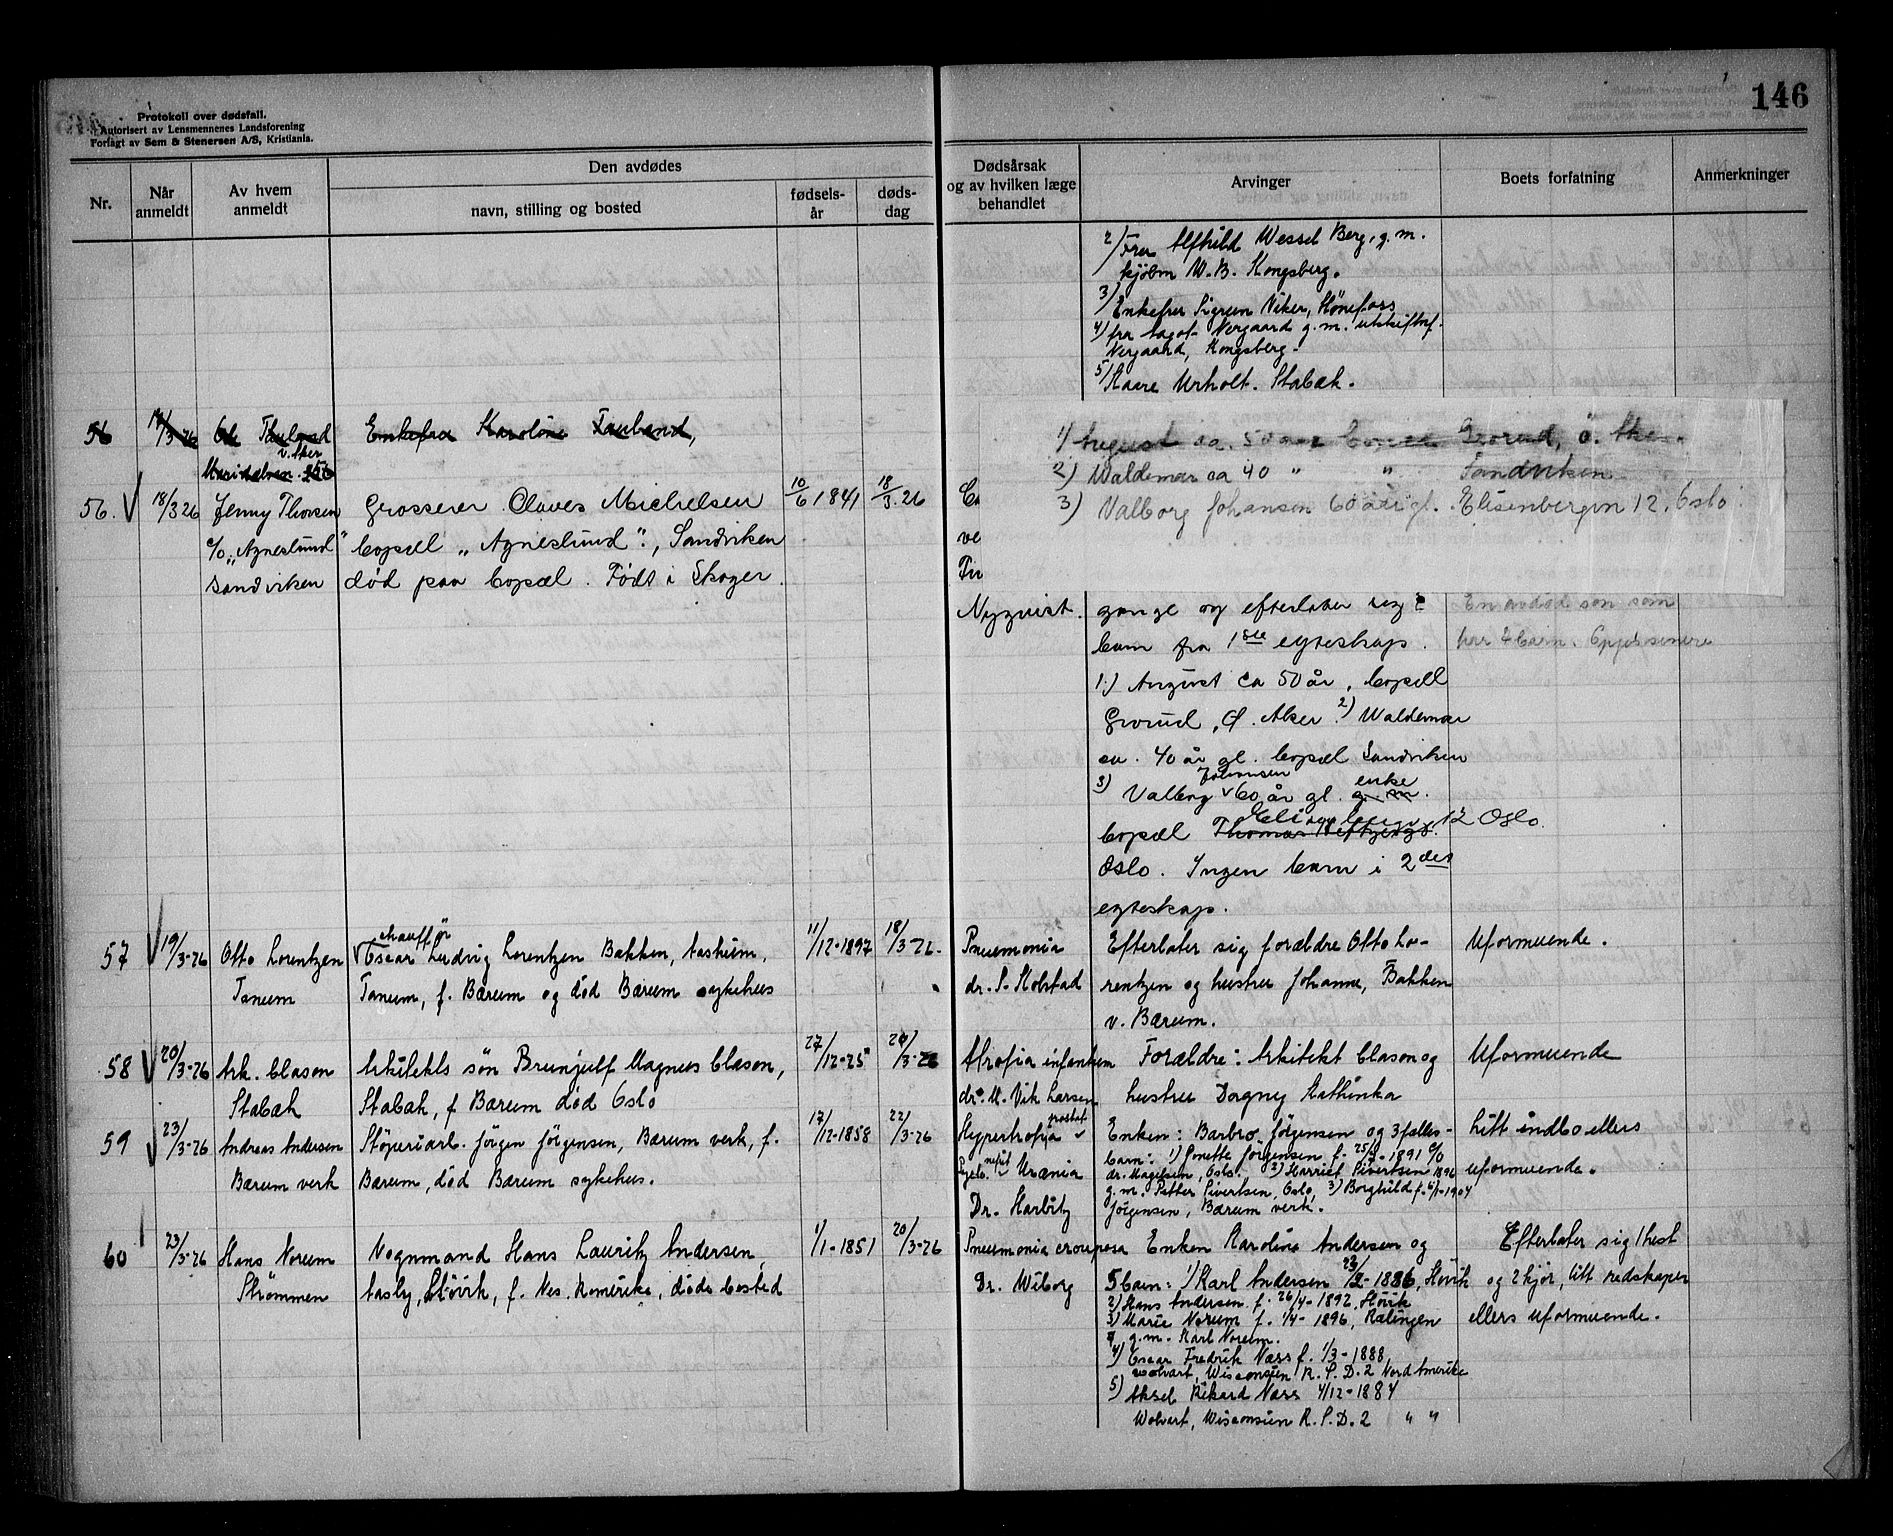 146
Protokoll over dødsfall.
Autorisert av Lensmennenes Landsforening
Forlagt av Sem & Stenersen A/S, Kristiania.
Nr.
Når anmeldt
Av hvem anmeldt
Den avdødes
navn, stilling og bosted
fødsels-år
døds-dag
Dødsårsak og av hvilken læge behandlet
Arvinger
Boets forfatning
Anmerkninger
2) Fru Alfhild Wessel Berg, g.m.
kjøbm W.B. Kongsberg.
3) Enkefru Sigrun Viker, Hönefoss
4) fru Aagot Norgaard g.m. utskiftnf.
Norgaard, Kongsberg.
5) Kaare Urholt. Stabæk.
56
Enkefru Karoline
1) August ca. 50 aar bopæl Grorud, ö. Aker
2) Waldemar ca 40 " " Sandviken
3) Valborg Johansen 60 aar gl. Elisenbergvn 12, Oslo
56. 18/3 26 Jenny Thorsen Grosserer Claves Michelsen 10/6 1841 18/3.26
c/o „Agneslund" bopæll „Agneslund"., Sandviken
Sandviken död paa bopæl. Födt i Skoger.
Nyquist. gange og efterlater sig 2
barn fra 1ste egteskap.
En avdød søn som
har 4 barn. Opgis senere
1.) August ca 50 år, bopæll
Grorud, Ø. Aker. 2) Waldemar
ca. 40 år gl. bopæl Sandviken
3) Valborg Johansen 60 år gl. enke g. m.
bopæl Thomas Heftyesgt. 12 Oslo
Oslo. Ingen barn i 2det
egteskap.
57 19/3-26 Otto Lorentzen chaufför Oscar Ludvig Lorentzen Bakken, 11/12-1897 18/3-26. Pneumonia Efterlater sig forældre Otto Lo- Uformuende.
Tanum Tanum, f. Bærum og död Bærum sykehus dr. S. Kolstad rentzen og hustru Johanne, Bakken
v. Bærum.
58 20/3-26 Ark. Clason Arkitekts sön Brunjulf Magnus Clason, 27/12-25 20/3-26 Atrofia infantum Forældre: Arkitekt Clason og Uformuende
Stabæk Stabæk, f Bærum död Oslo dr. M. Vik Larsen hustru Dagny Kathinka
59 23/3-26 Andreas Andersen Stöperiarb. Jörgen Jörgensen, Bærum verk, f. 17/12-1858 22/3-26 Hypertrofia prostat Enken: Barbro Jörgensen og 3 fælles- Litt indbo ellers
Bærum verk Bærum, död Bærum sykehus. Pyelo. nefrit Uræmia barn: 1) Jonette Jörgensen f. 25/5-1891 c/o uformuende.
dr. Magelsen, Oslo. 2) Harriet Sivertsen 1896
g.m. Petter Sivertsen, Oslo, 3) Borghild f. 6/1-1904
Dr. Harbitz Jörgensen, Bærum verk.
60 23/3-26 Hans Norum Vognmand Hans Lauritz Andersen, 1/1-1851 20/3-26 Pneumonia crouposa Enken Karoline Andersen og Efterlater sig 1 hest
Strömmen Aasly, Hövik, f. Nes. Romerike, döds bosted Dr. Wiborg 5 barn: 1) Karl Andersen 23/2-1886, Hövik og 2 kjør, litt redskaper
2) Hans Andersen f. 26/4-1892, Hövik
3) Marie Norum f. 1/4-1896, Rælingen ellers uformuende.
g.m. Karl Norum.
4) Oscar Fredrik Næss f. 1/3-1888
Wolvart, Wisconsin R.F.D. 2 Nord Amerika
5) Aksel Rikard Næss 4/12-1884
Wolvart, Wisconsin R.F.D. 2 " "